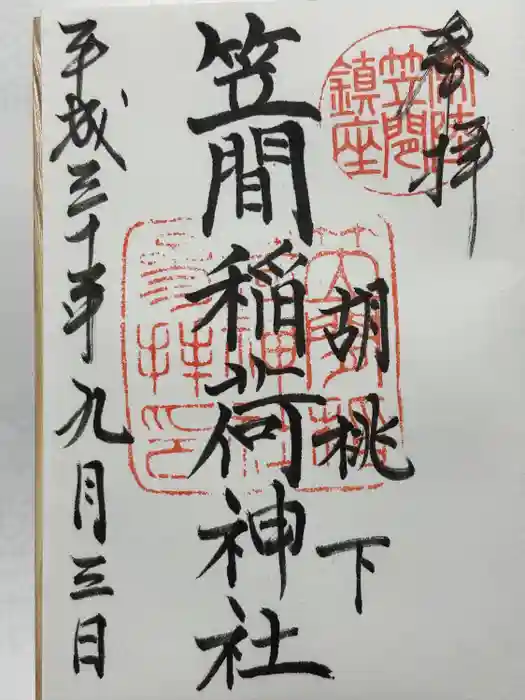 参拝
胡桃下
笠間稲荷神社
平成三十年九月三日
常陸
笠間
鎮座